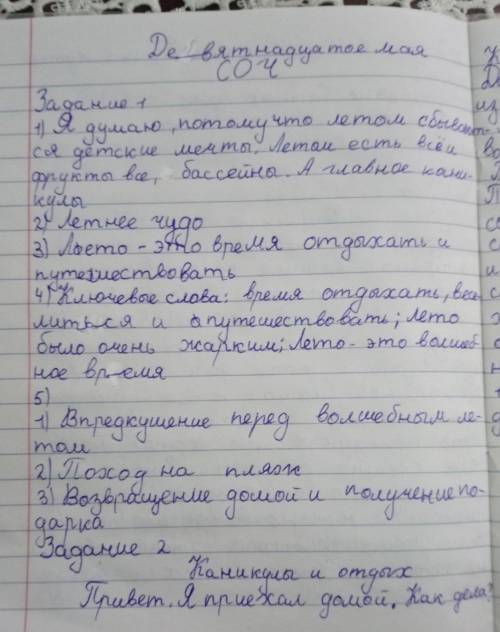 Девятнадцатое мая
СОЧ
Задание 1
1) Я думаю, потому что летом сбывают-
ся детские мечты. Летом есть всеи
фрукты все, бассейны. А главное кани-
кулы
2) Летнее чудо
3) Лоето - это время отдыхать и
путешествовать
4) Ключевые слова: время отдыхать, весе-
литься и путешествовать; лето
было очень жарким; лето - это волшеб-
ное время
5)
1) Впредкушение перед волшебным ле-
том
2) Поход на пляж
3) Возвращение домой и получение по-
дарка
Задание 2
Каникулы и отдых
Привет. Я приехал домой. Как дела?